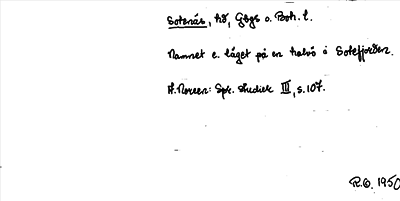 Sotenäs, hd, Gbgs o. Boh. l.
Namnet e. läget på en halvö i Sotefjorden.
A. Noreen: Spr. studier III, s. 107.
R.O. 1950